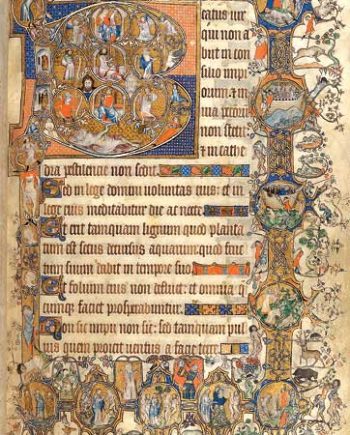 Beatus uir
qui non a
biit in con
silio impi
orum: & in
uia peccatorum
non stetit:
& in cathe
dra pestilencie non sedit.
Sed in lege domini uoluntas eius: et in
lege eius meditabitur die ac nocte.
Et erit tamquam lignum quod planta
tum est secus decursus aquarum: quod fruc
tum suum dabit in tempore suo.
Et folium eius non defluet: et omnia q
cumque faciet prosperabuntur.
Non sic impii non sic: sed tamquam pul
uis quem proicit uentus a facie terre.